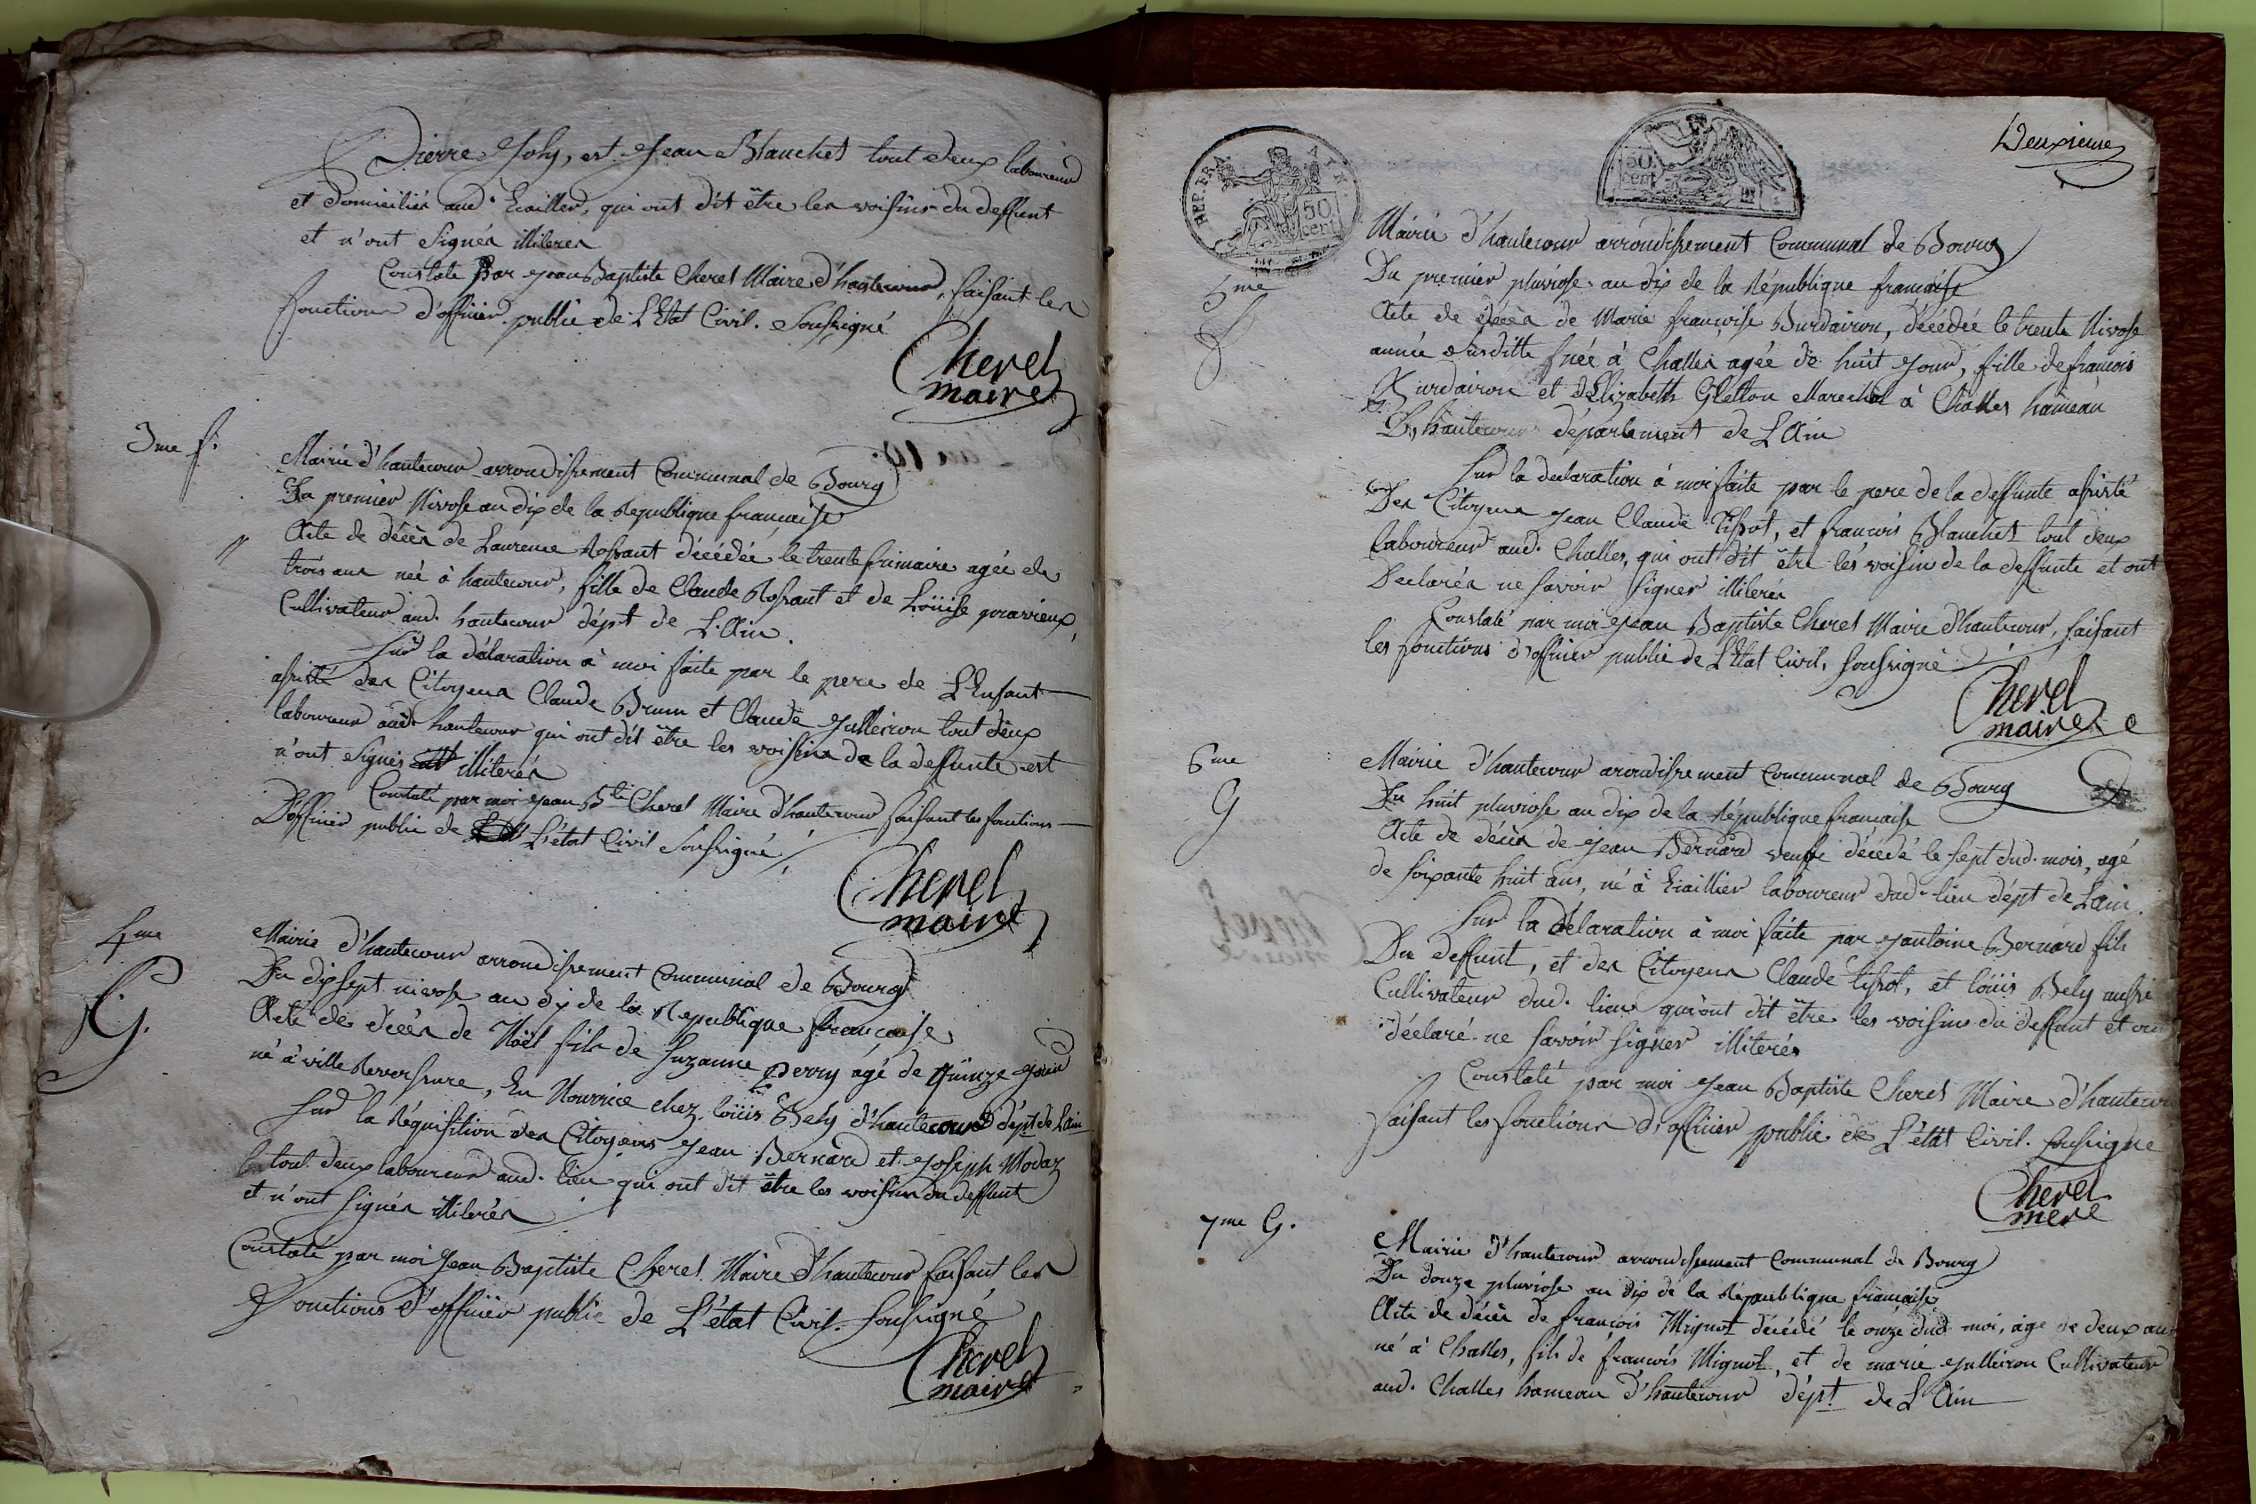 Pierre Joly, et Jean Blanchet tout deux laboureur
et domiciliés aud. Eciallier, qui ont dit être les voisins du deffunt
et n'ont signés illiterés
Constaté par Jean Baptiste Cheret Maire d'hautecour, faisant les
fonctions d'officier public de L'Etat Civil. Soussigné
Cherel
maire
3me f.
Mairie d'hautecour arrondissement Communal de Bourg
Du premier Nivose an dix de la République française
Acte de décès de Laurence Rossant décédée le trente frimaire agée de
trois ans née à hautecour, fille de Claude Rossant et de Loüise
Cultivateur aud. hautecour dépt de L'Ain.
Sur la déclaration à moi faite par le pere de L'Enfant
assisté des Citoyens Claude Brun et Claude Jullieron tout deux
laboureur aud. hautecour qui ont dit être les voisins de la deffunte et
n'ont signés illiterés
Constaté par moi Jean Bte Cherel Maire d'hautecour faisant les fonctions
D'officier public de L'état Civil Soussigné
Cherel
maire
4me
G.
Mairie d'hautecour arrondissement Communal de Bourg
Du dix sept nivose an dix de la République française
Acte de décès de Noël fils de Suzanne perry agé de quinze jours
né à ville Reversure, En Nourrice chez loüis Bely d'hautecour dépt de Lain
Sur la réquisition des Citoyens Jean Bernard et Joseph Modaz
tout deux laboureur aud. lieu qui ont dit être les voisins du deffunt
et n'ont signés illiterés
Constaté par moi Jean Baptiste Cherel Maire d'hautecour faisant les
Fonctions d'officier public de L'état Civil. Soussigné
Cherel
maire
Deuxieme
REP. FRA.
50
cent
50
cent
5me
f
Mairie d'hautecour arrondissement Communal de Bourg
Du premier pluviose an dix de la République française
Acte de décès de Marie françoise Burdairon, décédée le trente Nivose
année Susditte née à Challes agée de huit jour, fille de francois
Burdairon et d'Elizabeth Gletton Marechal à Challes hameau
D'hautecour département de L'Ain
Sur la declaration à moi faite par le pere de la deffunte assisté
Des Citoyens Jean Claude Tissot, et francois Blanchet tout deux
laboureur aud. Challes, qui ont dit être lés voisin de la deffunte et ont
Declarés ne savoir signer illiterés
Constaté par moi Jean Baptiste Cheret Maire d'hautecour, faisant
les fonctions d'officier public de L'Etat Civil, soussigné
Cherel
maire
6me
G
Mairie d'hautecour arrondissement Communal de Bourg
Du huit pluviose an dix de la République française
Acte de décès de Jean Bernard veuf décédé le sept dud. mois, agé
de soixante huit ans, né à Eciallier laboureur dud. lieu dépt de Lain.
Sur la déclaration à moi faite par antoine Bernard fils
Du deffunt, et des Citoyens Claude tissot, et loüis Bely aussi
Cultivateur dud. lieu qui ont dit être les voisins du deffunt et
déclaré ne savoir signer illiterés
Constaté par moi Jean Baptiste Cheret Maire d'hautecour
faisant les fonctions d'officier public de L'état Civil. soussigne
Cherel
mere
7me G.
Mairie d'hautecour arrondissement Communal de Bourg
Du douze pluviose an dix de la République française
Acte de décès de françois Mignot décédé le onze dud moi, age de deux ans
né à Challes, fils de françois Mignot, et de marie Jullieron Cultivateur
aud. Challes hameau d'hautecour dépt de L'Ain